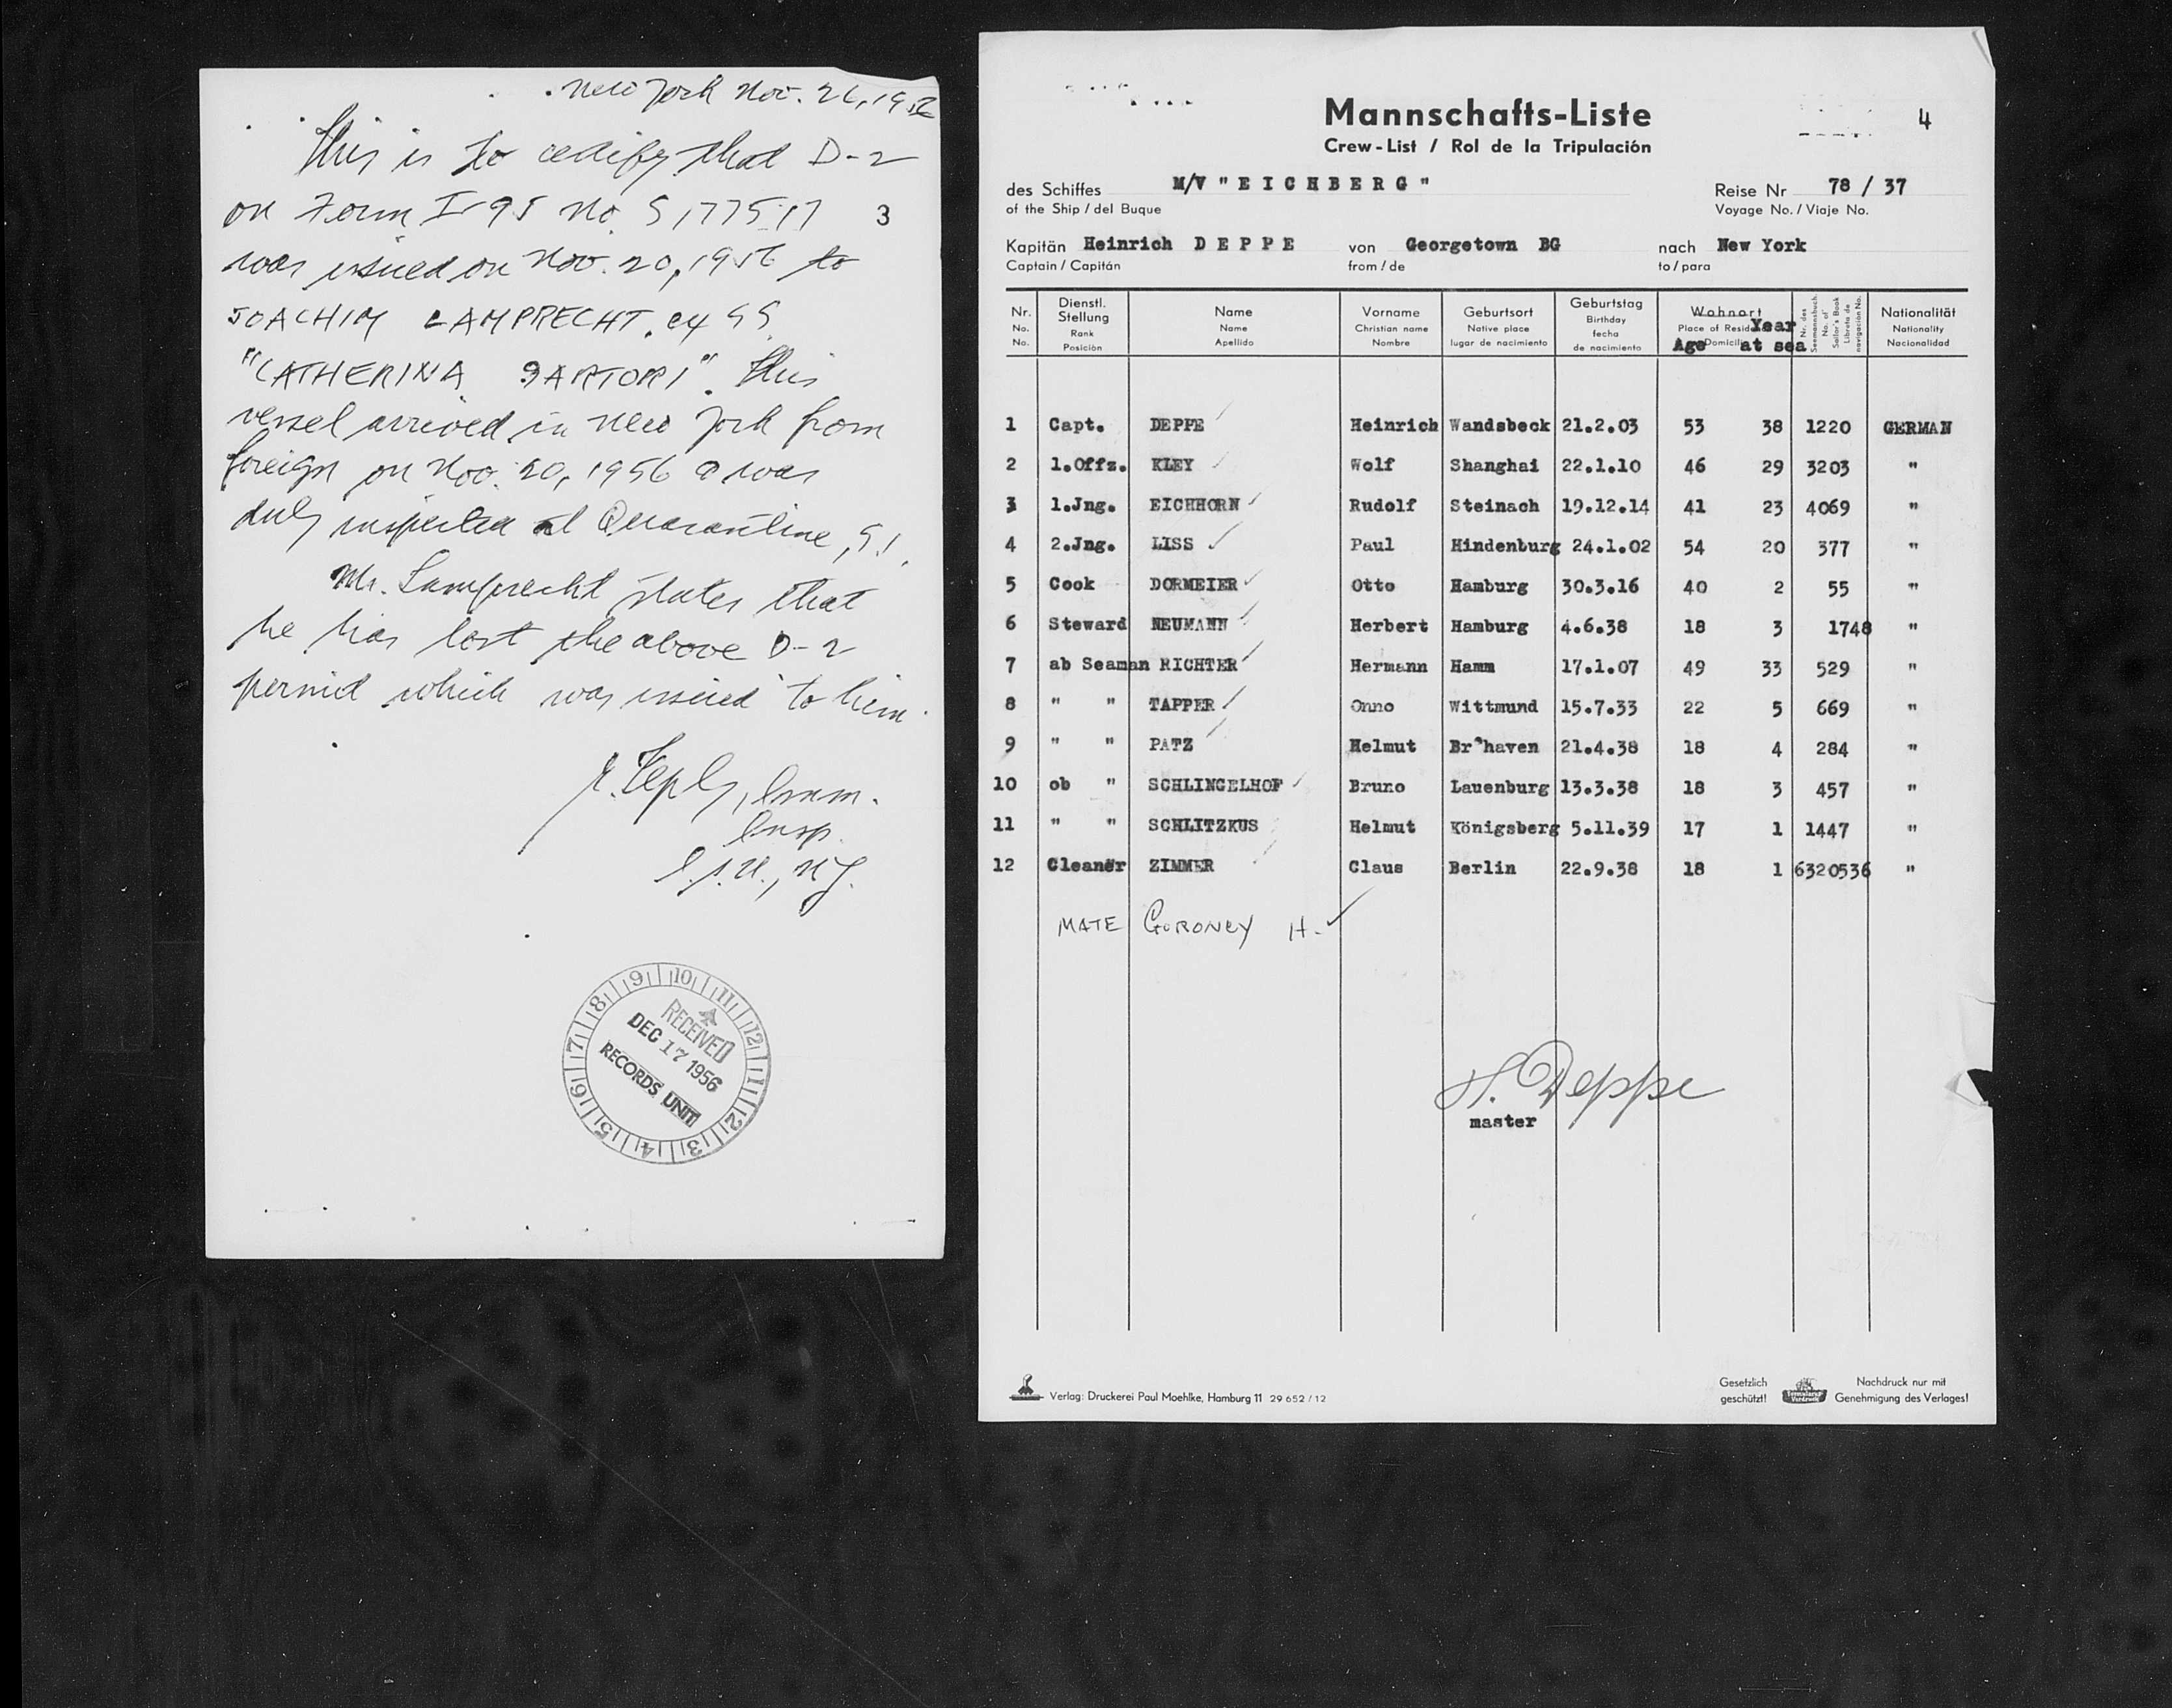 New York Nov. 26, 1956
This is to certify that D-2
on Form I-95 No. 5177517
3
was issued on Nov. 20, 1956 to
JOACHIM LAMPRECHT, ex SS
"CATHERINA SARTORI". This
vessel arrived in New York from
foreign on Nov. 20, 1956 & was
duly inspected at Quarantine, S.I.
Mr. Lamprecht states that
he has lost the above D-2
permit which was issued to him.
Imm.
Insp.
N.Y.
9 10 11 12 1 2 3 4 5 6 7 8
RECEIVED
DEC 17 1956
RECORDS UNIT
Mannschafts-Liste
4
Crew-List / Rol de la Tripulación
des Schiffes M/V "EICHBERG" Reise Nr 78 / 37
of the Ship / del Buque Voyage No. / Viaje No.
Kapitän Heinrich DEPPE von Georgetown BG nach New York
Captain / Capitán from / de to / para
Nr. Dienstl. Stellung Name Vorname Geburtsort Geburtstag Wohnort Nr. des Seemannsbuch. Nationalität
No. Rank Name Christian name Native place Birthday Place of Resid Year No. of Sailor's Book Nationality
No. Posición Apellido Nombre lugar de nacimiento fecha de nacimiento Age Domicil at sea Libreta de navigación No. Nacionalidad
1 Capt. DEPPE Heinrich Wandsbeck 21.2.03 53 38 1220 GERMAN
2 1.Offz. KLEY Wolf Shanghai 22.1.10 46 29 3203 "
3 1.Jng. EICHHORN Rudolf Steinach 19.12.14 41 23 4069 "
4 2.Jng. LISS Paul Hindenburg 24.1.02 54 20 377 "
5 Cook DORMEIER Otto Hamburg 30.3.16 40 2 55 "
6 Steward NEUMANN Herbert Hamburg 4.6.38 18 3 1748 "
7 ab Seaman RICHTER Hermann Hamm 17.1.07 49 33 529 "
8 " " TAPPER Onno Wittmund 15.7.33 22 5 669 "
9 " " PATZ Helmut Br'haven 21.4.38 18 4 284 "
10 ob " SCHLINGELHOF Bruno Lauenburg 13.3.38 18 3 457 "
11 " " SCHLITZKUS Helmut Königsberg 5.11.39 17 1 1447 "
12 Cleaner ZIMMER Claus Berlin 22.9.38 18 1 6320536 "
MATE GORONEY H.
H. Deppe
master
Verlag: Druckerei Paul Moehlke, Hamburg 11 29 652 / 12
Gesetzlich geschützt!
Nachdruck nur mit Genehmigung des Verlages!